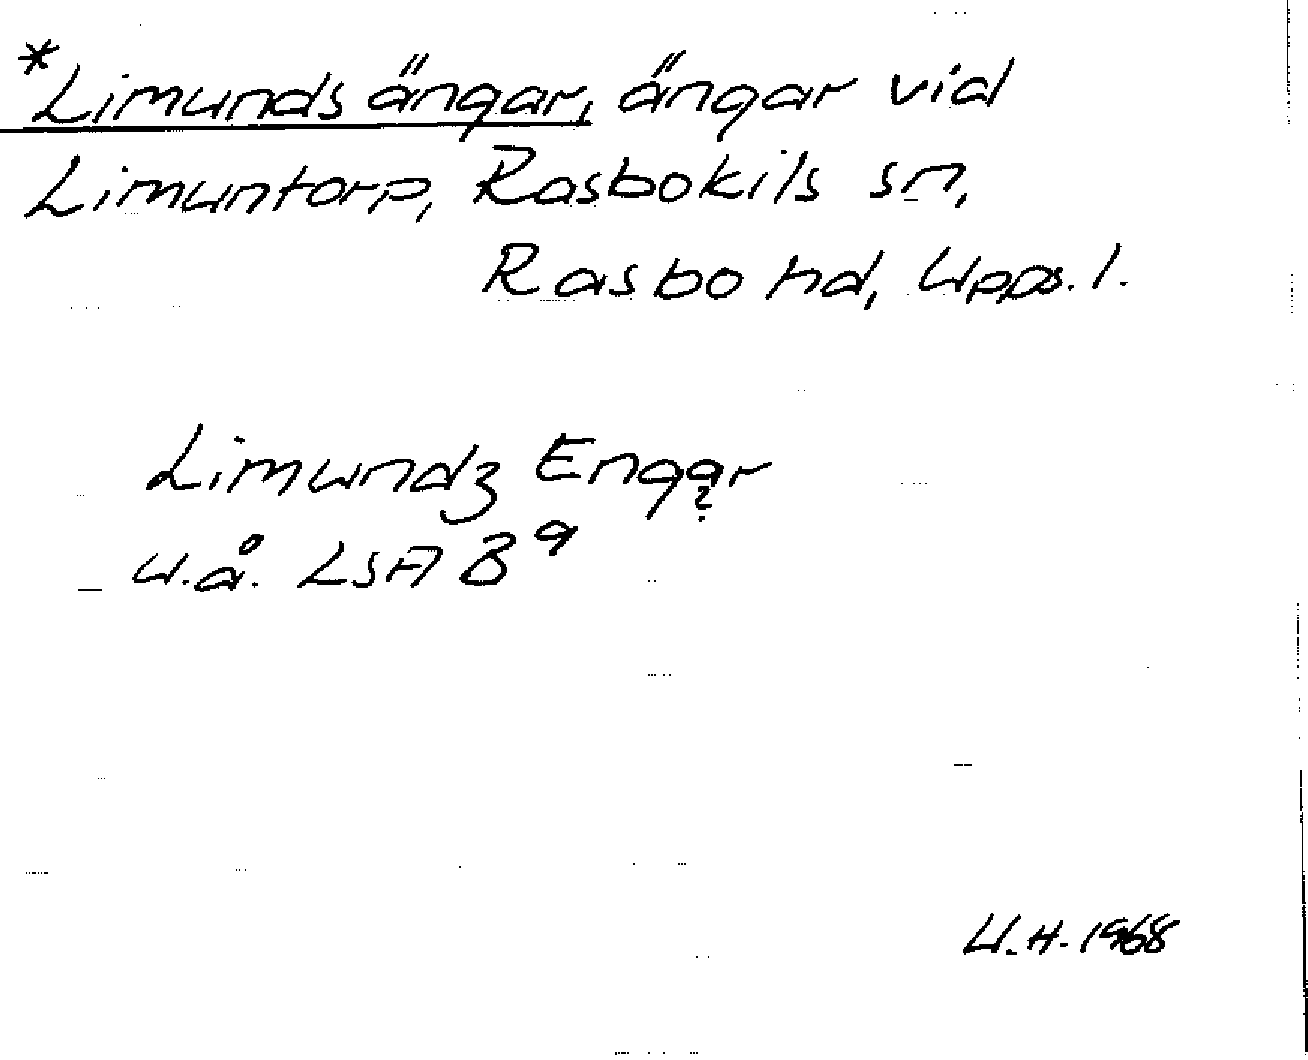 *Limunds ängar, ängar vid
Limuntorp, Rasbokils sn,
Rasbo hd, Upps. l.
Limundz Engar
?
u.å. LSA B9
U.H. 1968